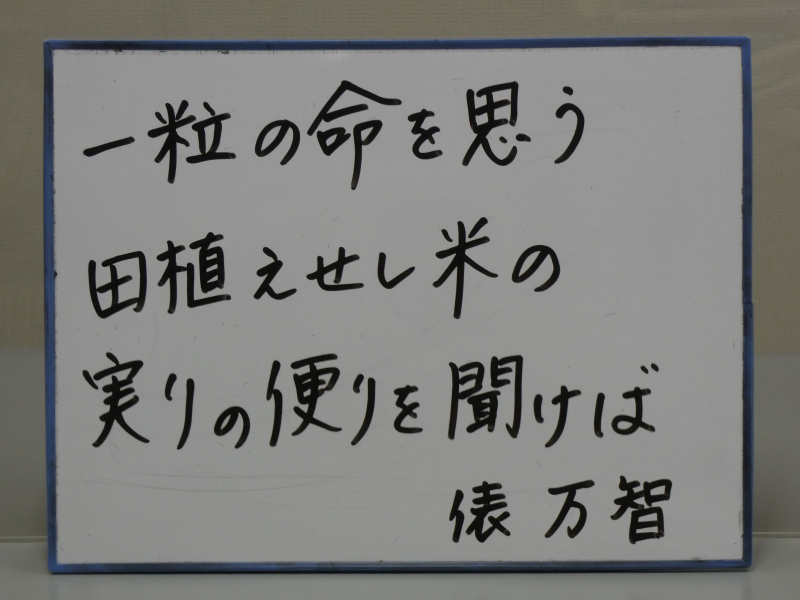 一粒の命を思う
田植えせし米の
実りの便りを聞けば
俵 万智